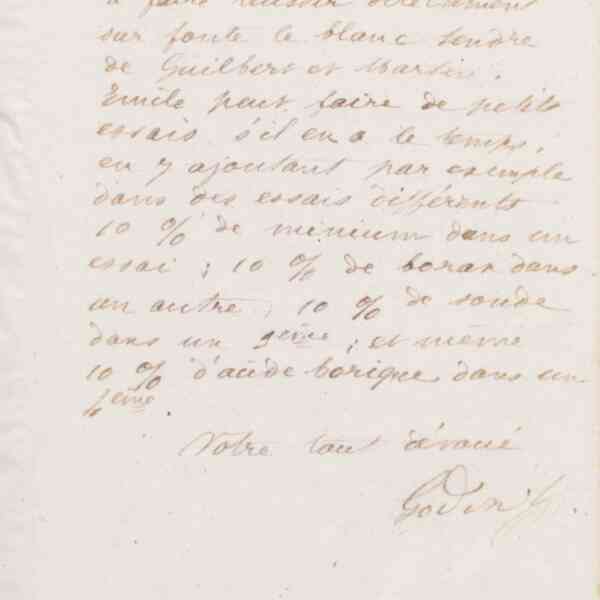 à faire réussir directement
sur fonte le blanc tendre
de Guilbert et Martin.
Emile peut faire de petits
essais s'il en a le temps,
en y ajoutant par exemple
dans des essais différents
10 % de minium dans un
essai ; 10 % de borax dans
un autre ; 10 % de soude
dans un 3eme ; et même
10 % d'acide borique dans un
4eme.
Votre tout dévoué
Godin